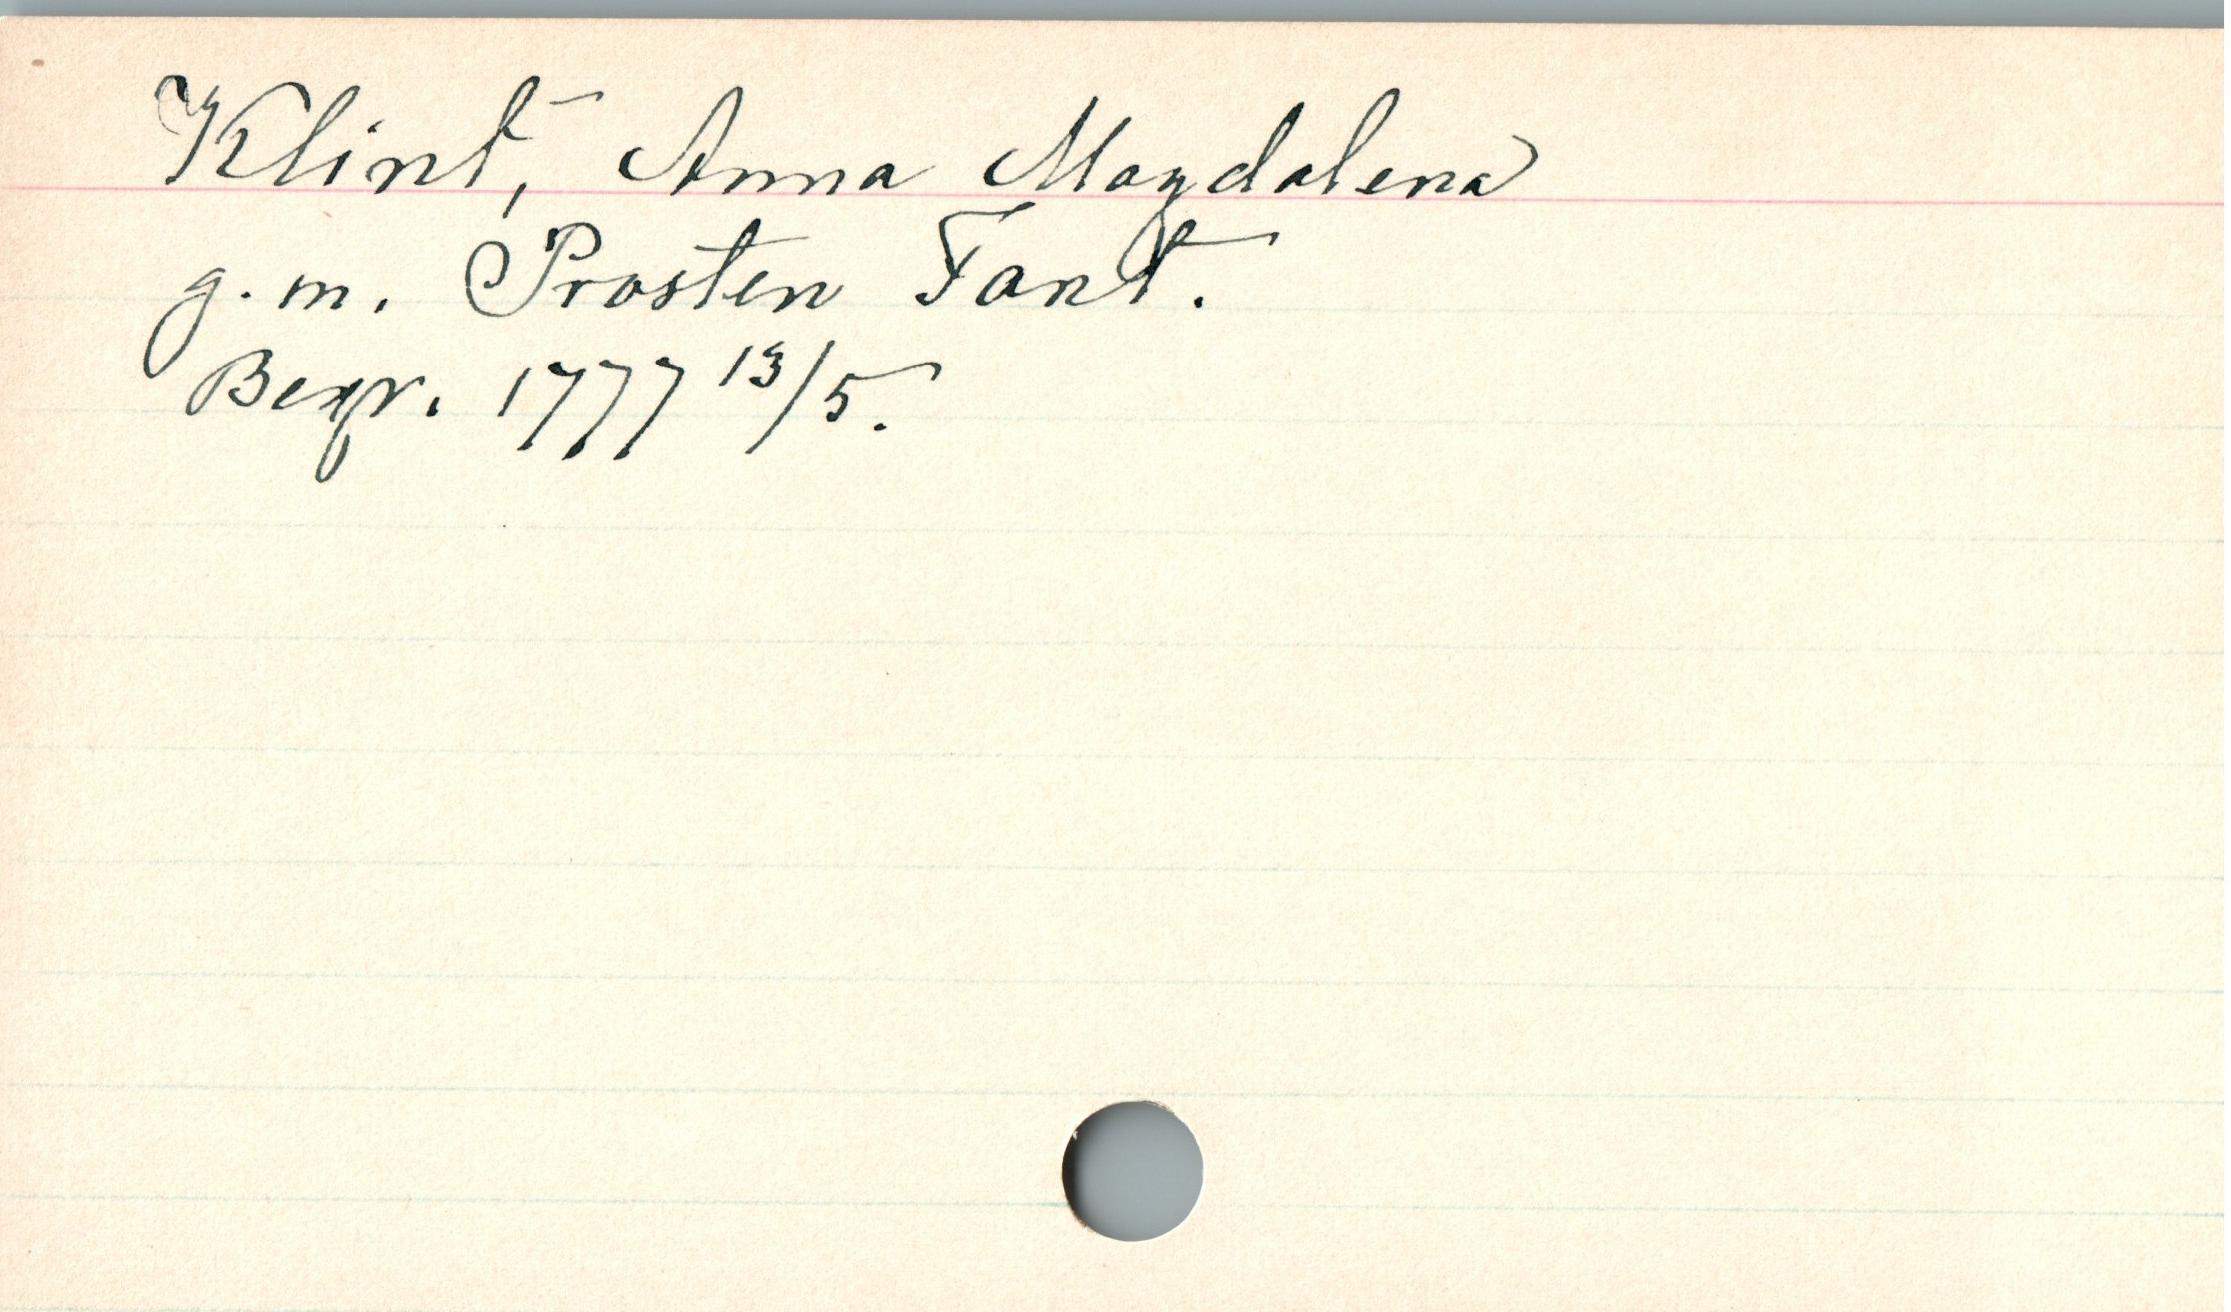 Klint, Anna Magdalena
g. m. Prosten Fant.
Begr. 1777 13/5.